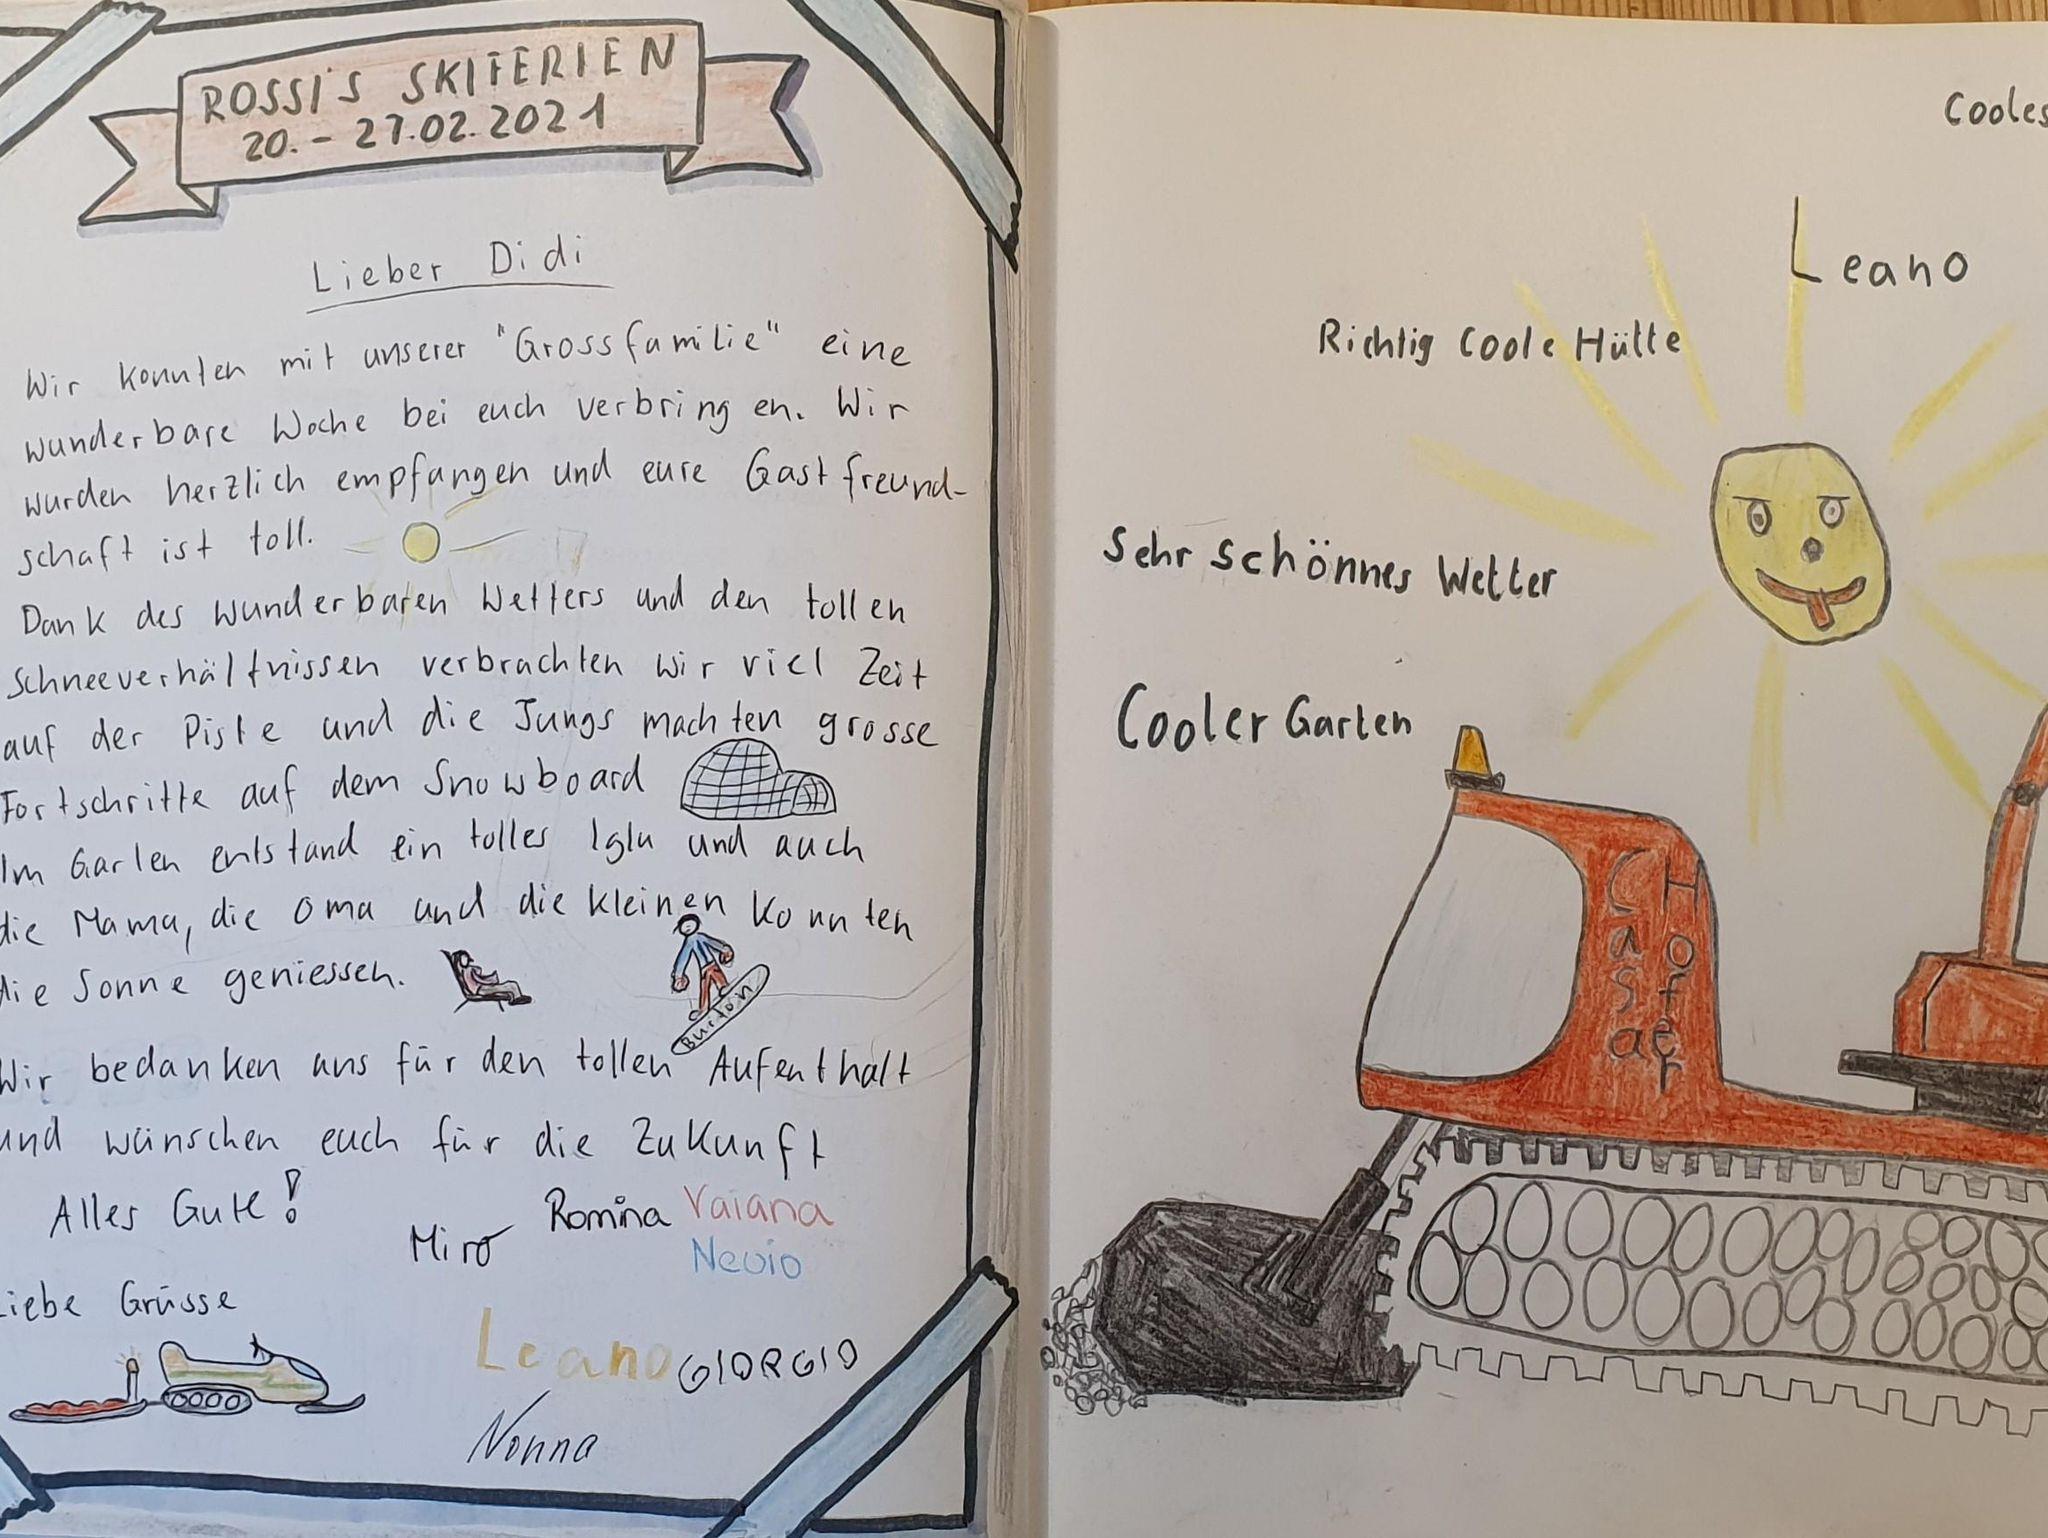 ROSSI'S SKIFERIEN
20. - 27.02.2021
Lieber Didi
Wir konnten mit unserer "Grossfamilie" eine
wunderbare Woche bei euch verbringen. Wir
wurden herzlich empfangen und eure Gastfreund-
schaft ist toll.
Dank des wunderbaren Wetters und den tollen
Schneeverhältnissen verbrachten wir viel Zeit
auf der Piste und die Jungs machten grosse
Fortschritte auf dem Snowboard
Im Garten entstand ein tolles Iglu und auch
die Mama, die Oma und die kleinen konnten
die Sonne geniessen.
Burton
Wir bedanken uns für den tollen Aufenthalt
und wünschen euch für die Zukunft
Alles Gute!
Miro
Romina Vaiana
Nevio
Liebe Grüsse
Leano GIORGIO
Nonna
Cooles
Leano
Richtig Coole Hütte
Sehr schönnes Wetter
Cooler Garten
Casa
Hofer